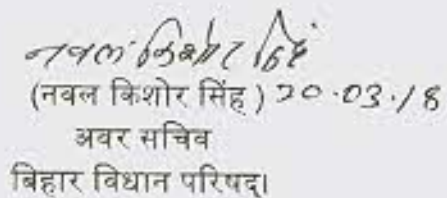 नवल किशोर सिंह
(नवल किशोर सिंह ) 20.03.18
अवर सचिव
बिहार विधान परिषद्।